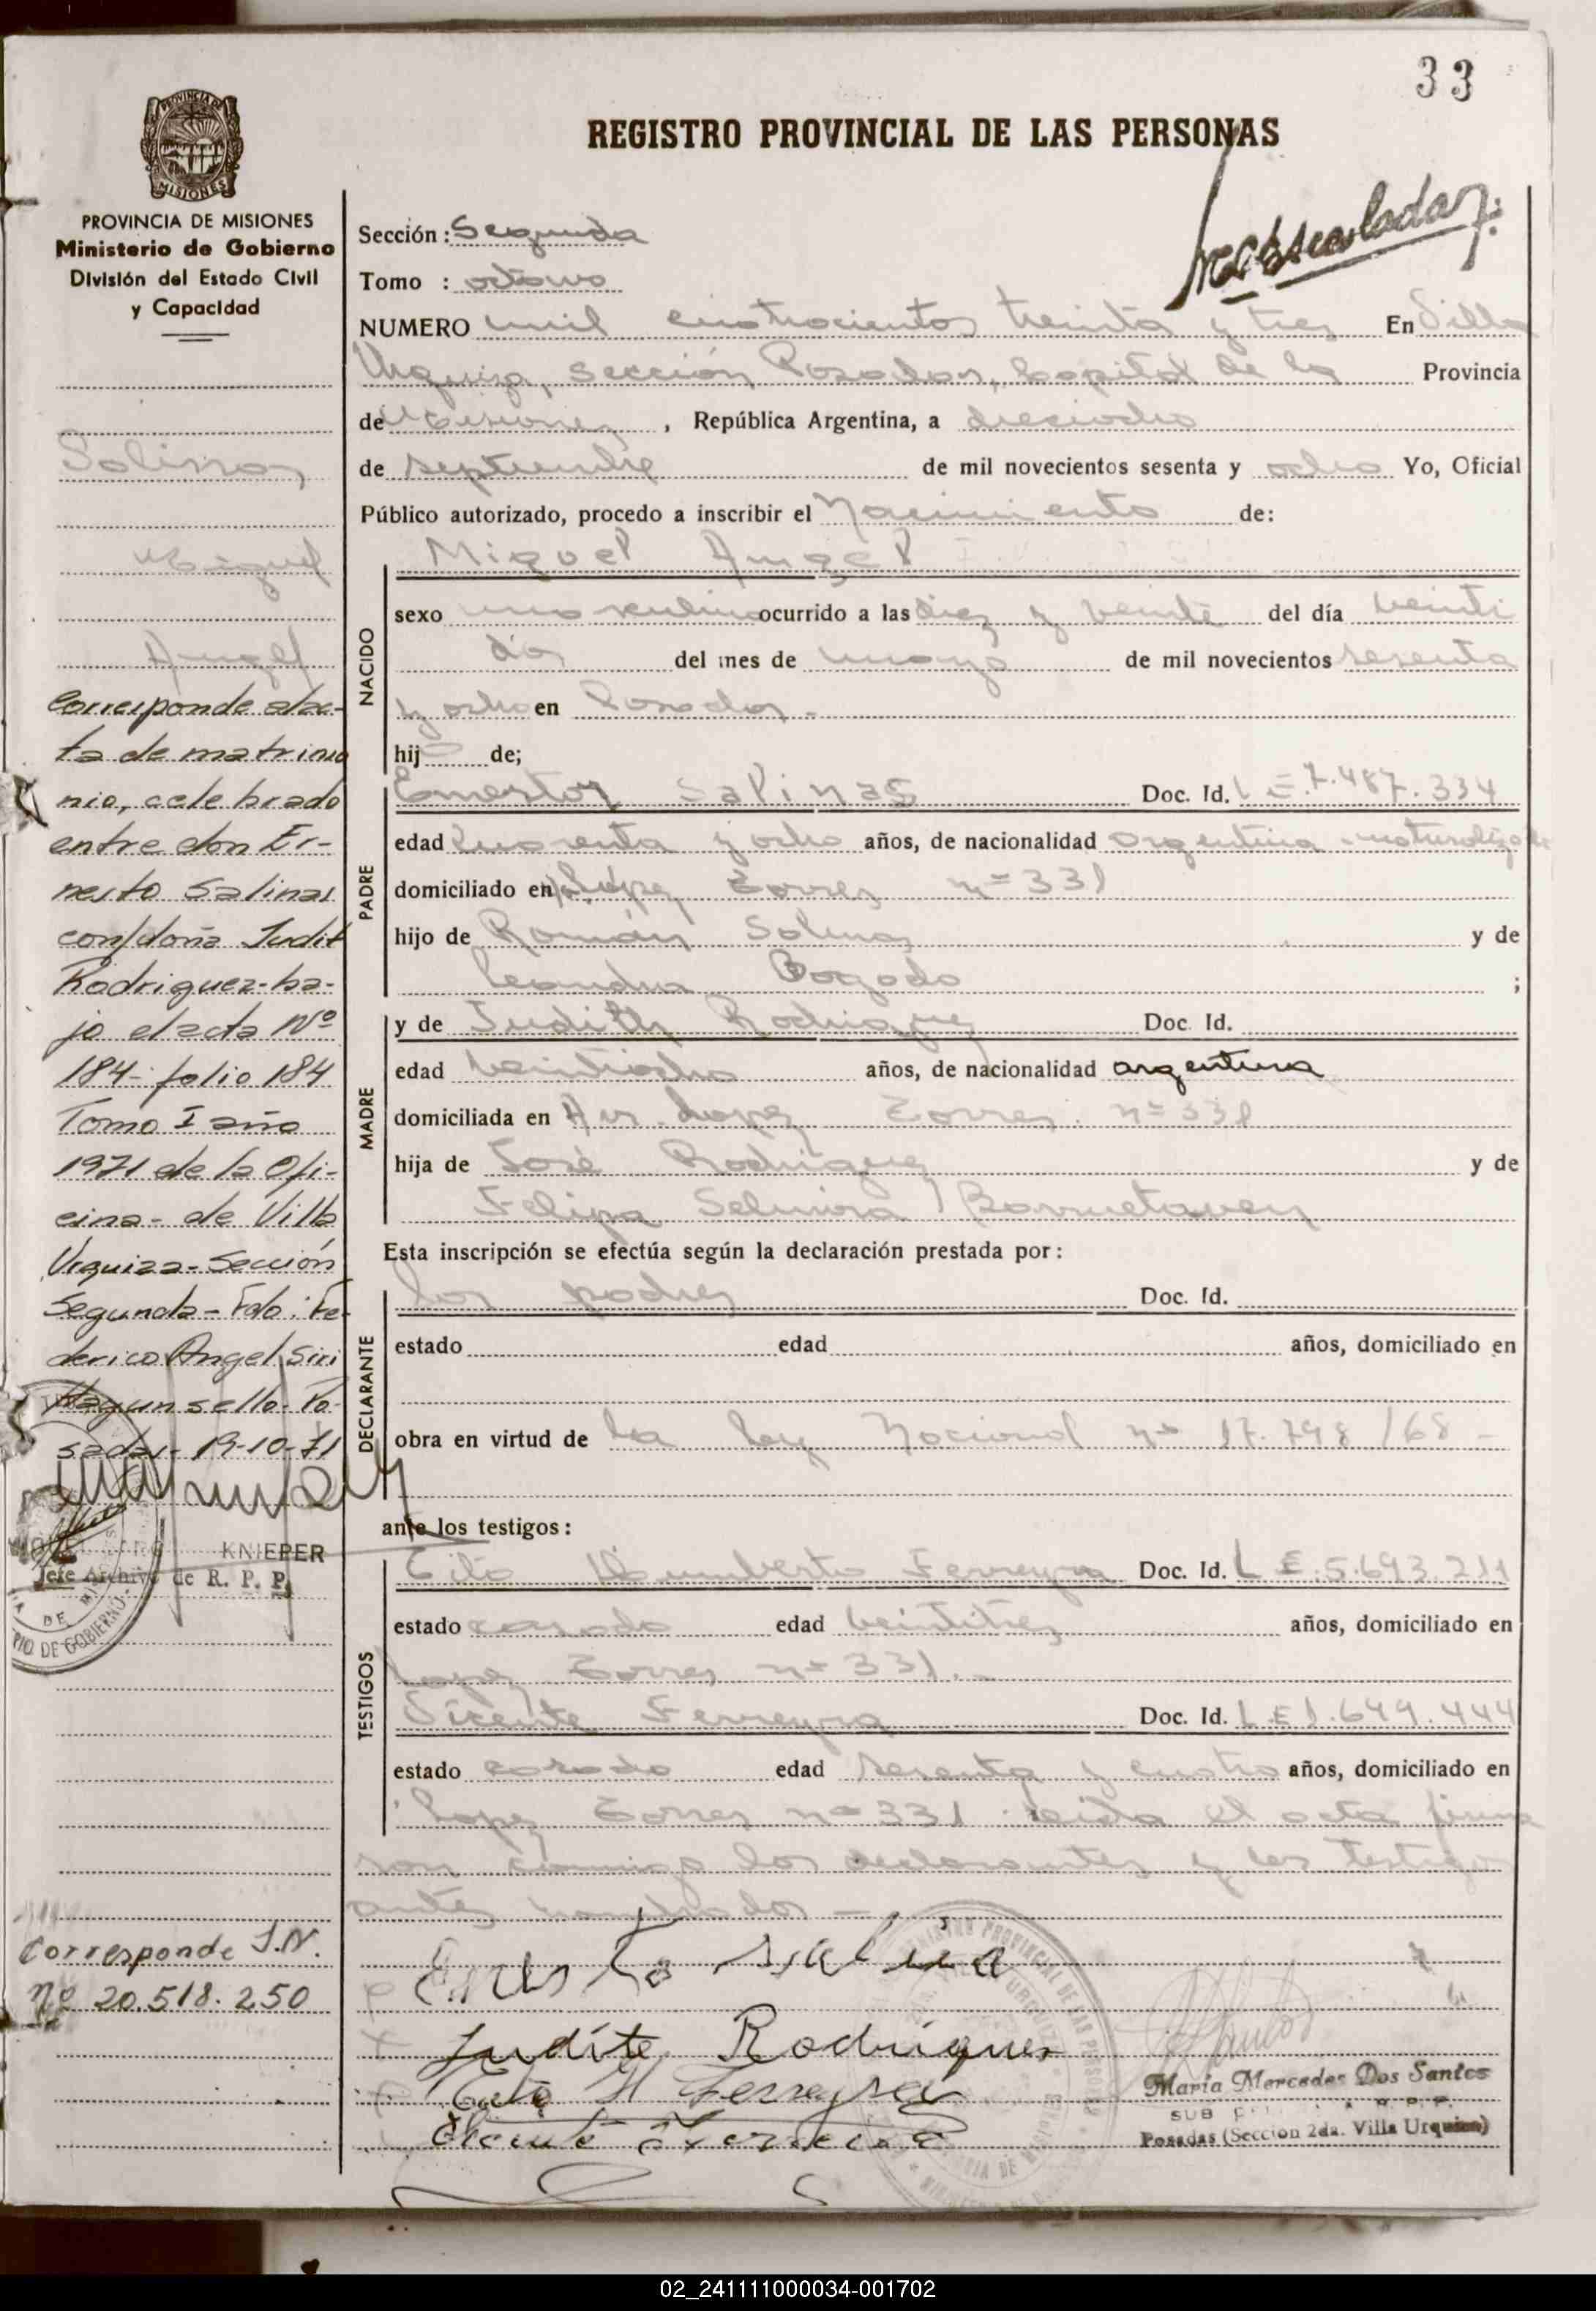 33
REGISTRO PROVINCIAL DE LAS PERSONAS
PROVINCIA DE MISIONES
Ministerio de Gobierno
División del Estado Civil
y Capacidad
Salinas
Miguel
Angel
Corresponde al ac-
ta de matrimo
nio, celebrado
entre don Er-
nesto Salinas
con/doña Judit
Rodriguez-ba-
jo el acta Nº
184- folio 184
Tomo I año
1971 de la Ofi-
cina- de Villa
Urquiza- Sección
Segunda- Fdo: Fe-
derico Angel Siri
Hay un sello- Po-
sadas- 19-10-71
KNIEPER
Jefe Archivo de R. P. P.
DE GOBIERNO
Corresponde I.N.
Nº 20.518.250
Sección: Segunda
Tomo : octavo
NUMERO mil cuatrocientos treinta y tres En Villa
Urquiza, sección Posadas, Capital de la Provincia
de Misiones, República Argentina, a dieciocho
de septiembre de mil novecientos sesenta y ocho Yo, Oficial
Público autorizado, procedo a inscribir el Nacimiento de:
NACIDO
Miguel Angel
sexo masculino ocurrido a las diez y veinte del día veinti
dos del mes de mayo de mil novecientos sesenta
y ocho en Posadas.-
hijo de;
PADRE
Ernesto Salinas Doc. Id. L E. 7.487.334
edad cuarenta y ocho años, de nacionalidad argentina - naturalizado
domiciliado en López Torres nº 331
hijo de Román Salinas y de
Leandra Bogado ;
MADRE
y de Judith Rodriguez Doc. Id.
edad veintiocho años, de nacionalidad argentina
domiciliada en Av. Lopez Torres. nº 331
hija de José Rodriguez y de
Felipa Selmira Barruetavey
Esta inscripción se efectúa según la declaración prestada por:
DECLARANTE
los padres Doc. Id.
estado edad años, domiciliado en
obra en virtud de la ley Nacional nº 17.798/68-
ante los testigos:
TESTIGOS
Tito Humberto Ferreyra Doc. Id. L E.5.693.211
estado casado edad veintitres años, domiciliado en
Lopez Torres nº 331.-
Vicente Ferreyra Doc. Id. L.E 1.649.444
estado casado edad sesenta y cuatro años, domiciliado en
Lopez Torres nº 331. leída el acta firma
son conmigo los declarantes y los testigos
antes nombrados -
Ernesto Salina
Judíte Rodrigues
Tito H Ferreyra
Vicente Ferreira
María Mercedes Dos Santos
Posadas (Sección 2da. Villa Urquiza)
02_241111000034-001702